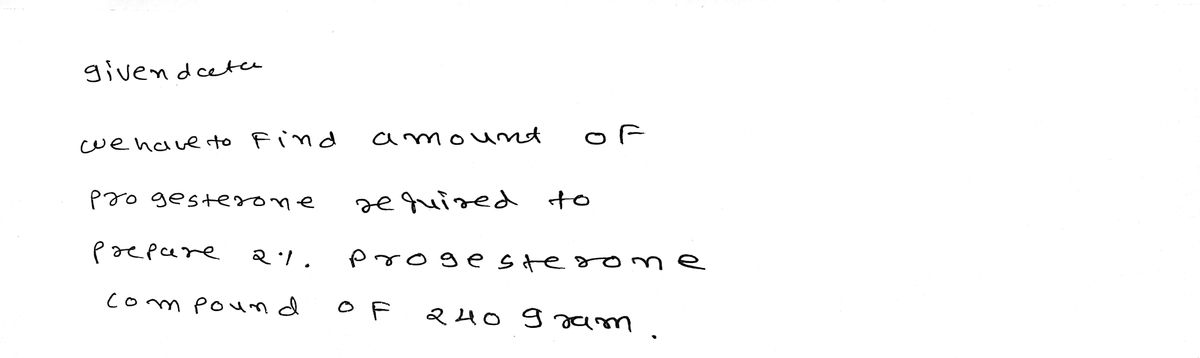 given data
we have to Find amount of
progesterone required to
prepare 2%. progesterone
compound of 240 gram.